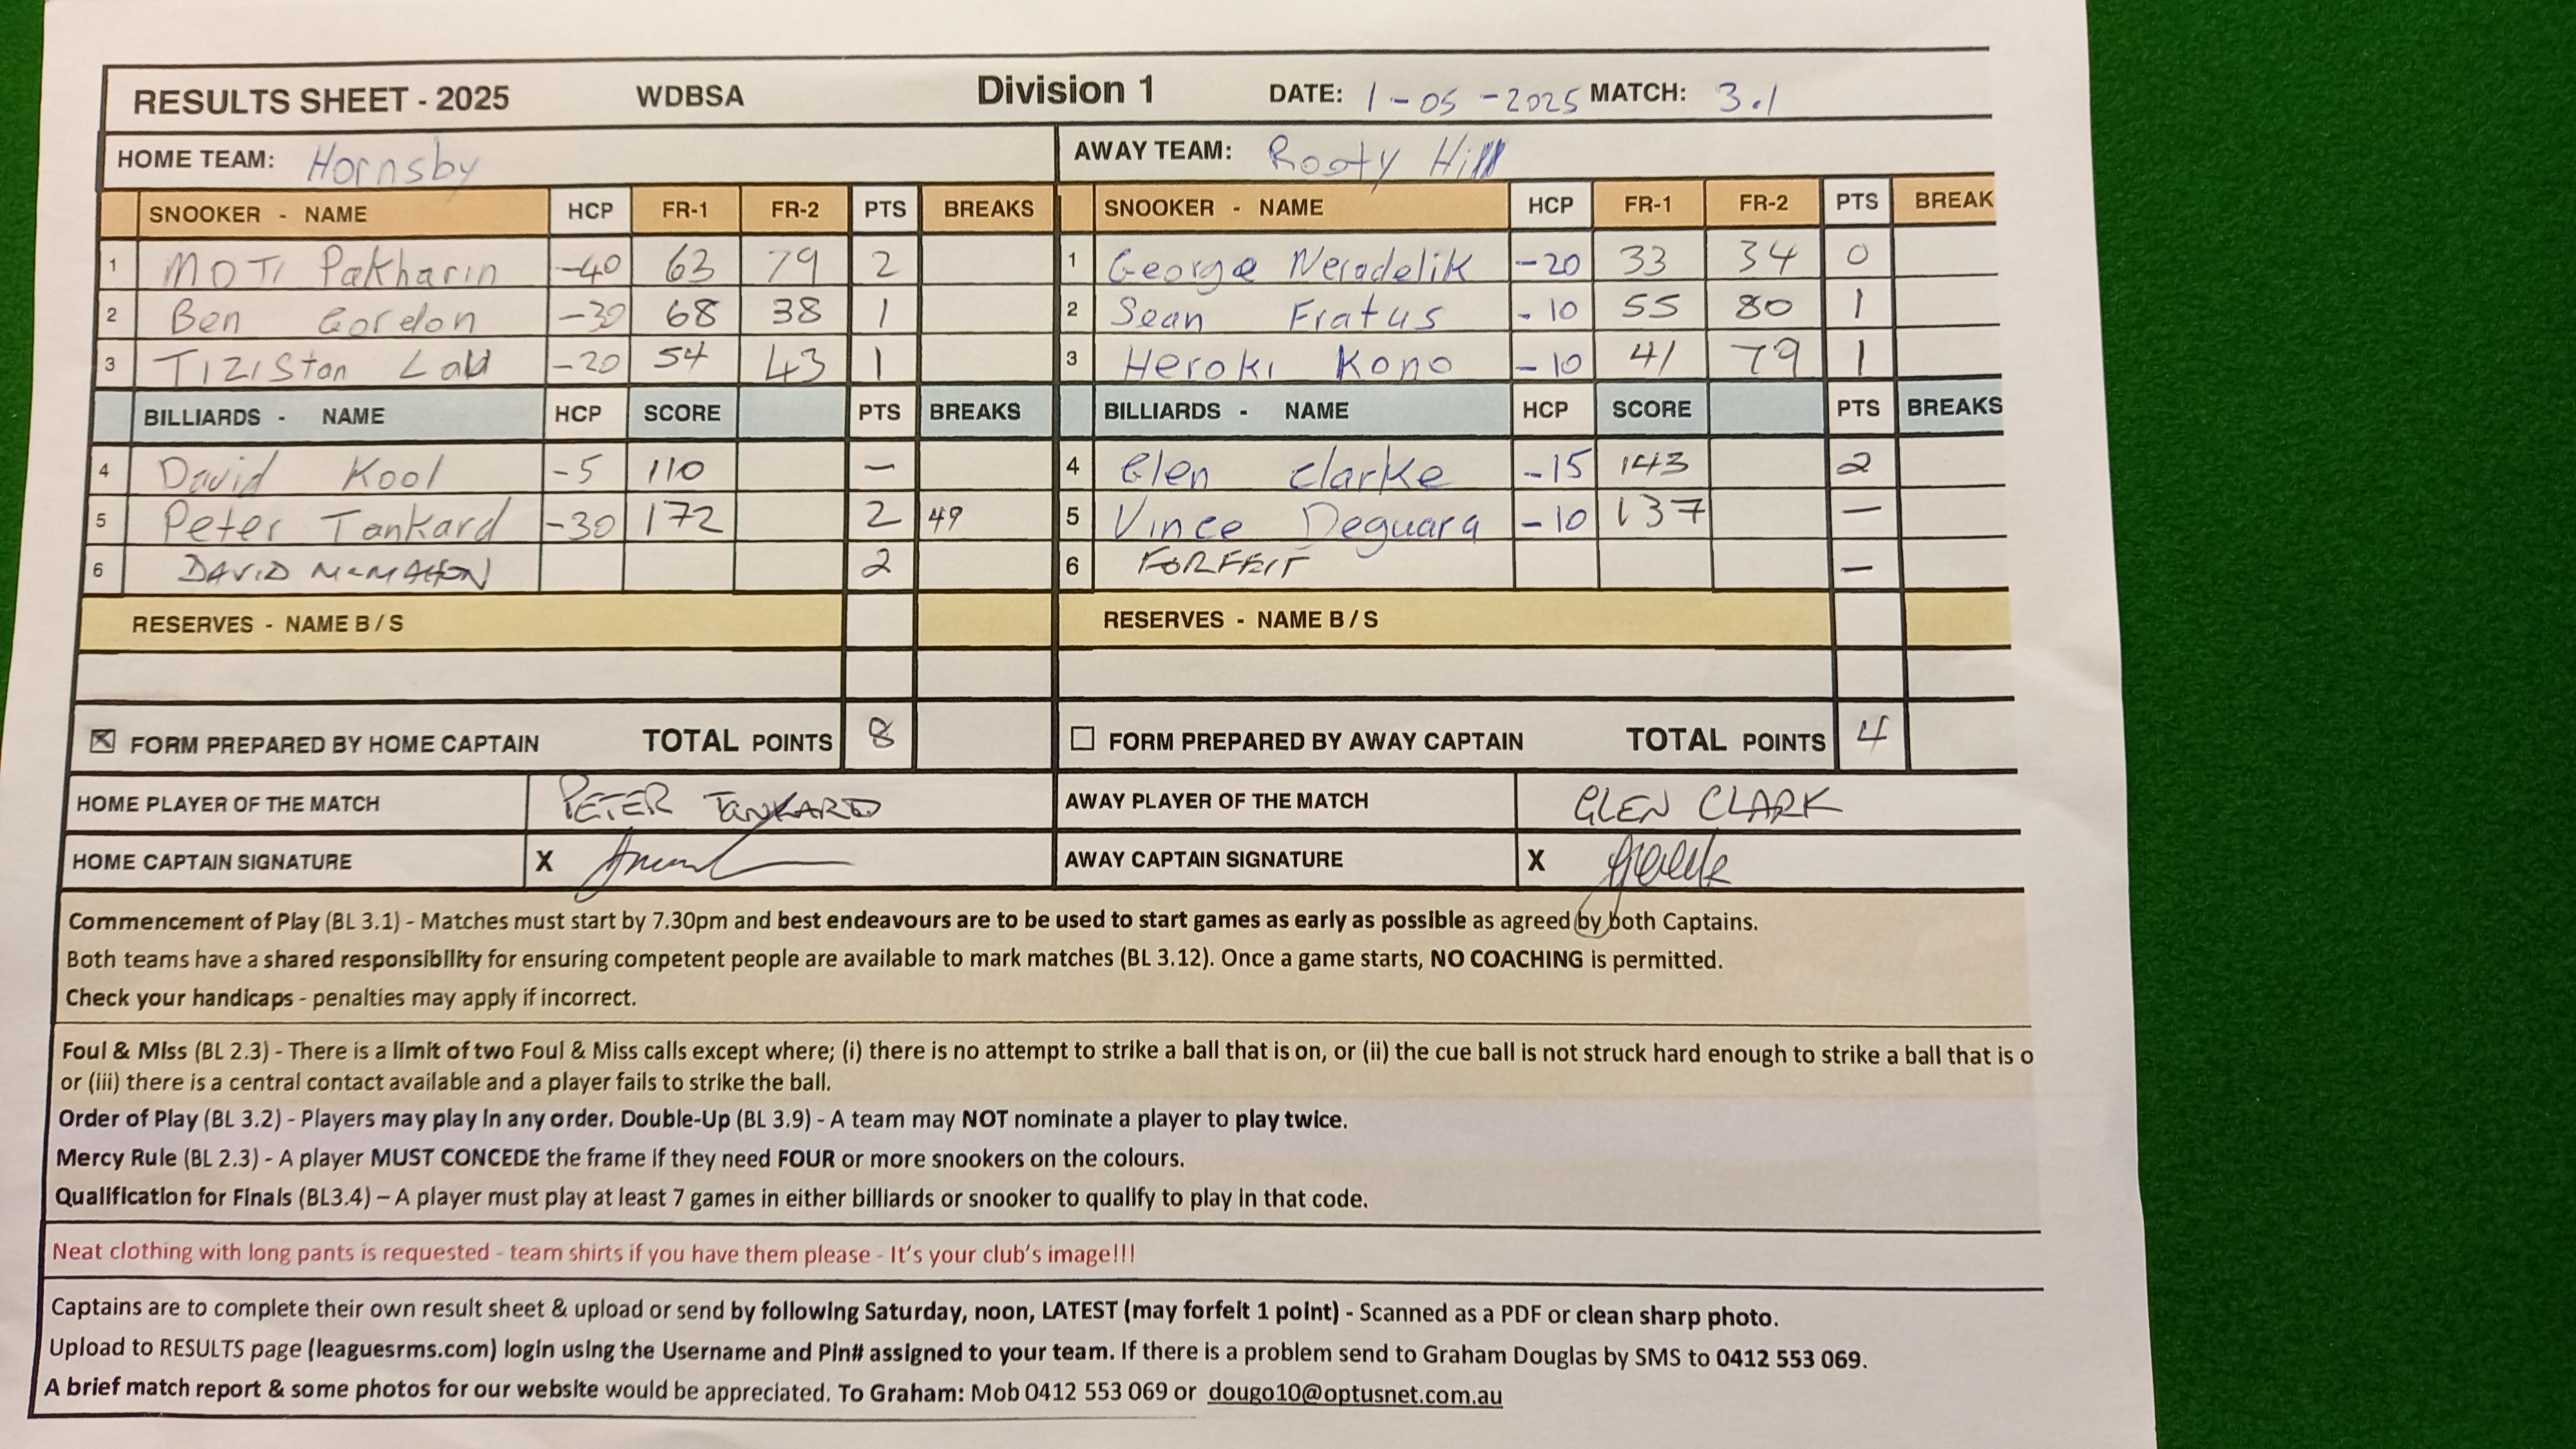 RESULTS SHEET - 2025 WDBSA Division 1 DATE: 1-05-2025 MATCH: 3.1
HOME TEAM: Hornsby AWAY TEAM: Rooty Hill
SNOOKER - NAME HCP FR-1 FR-2 PTS BREAKS SNOOKER - NAME HCP FR-1 FR-2 PTS BREAK
1 MOTI Pakharin -40 63 79 2 1 George Neradelik -20 33 34 0
2 Ben Gordon -30 68 38 1 2 Sean Fratus -10 55 80 1
3 -20 54 43 1 3 Heroki Kono -10 41 79 1
BILLIARDS - NAME HCP SCORE PTS BREAKS BILLIARDS - NAME HCP SCORE PTS BREAKS
4 David Kool -5 110 — 4 Glen Clarke -15 143 2
5 Peter Tankard -30 172 2 49 5 Vince Deguara -10 137 —
6 DAVID McMAHON 2 6 FORFEIT —
RESERVES - NAME B / S RESERVES - NAME B / S
FORM PREPARED BY HOME CAPTAIN TOTAL POINTS 8 FORM PREPARED BY AWAY CAPTAIN TOTAL POINTS 4
HOME PLAYER OF THE MATCH PETER TANKARD AWAY PLAYER OF THE MATCH GLEN CLARK
HOME CAPTAIN SIGNATURE X AWAY CAPTAIN SIGNATURE X
Commencement of Play (BL 3.1) - Matches must start by 7.30pm and best endeavours are to be used to start games as early as possible as agreed by both Captains.
Both teams have a shared responsibility for ensuring competent people are available to mark matches (BL 3.12). Once a game starts, NO COACHING is permitted.
Check your handicaps - penalties may apply if incorrect.
Foul & Miss (BL 2.3) - There is a limit of two Foul & Miss calls except where; (i) there is no attempt to strike a ball that is on, or (ii) the cue ball is not struck hard enough to strike a ball that is o
or (iii) there is a central contact available and a player fails to strike the ball.
Order of Play (BL 3.2) - Players may play in any order. Double-Up (BL 3.9) - A team may NOT nominate a player to play twice.
Mercy Rule (BL 2.3) - A player MUST CONCEDE the frame if they need FOUR or more snookers on the colours.
Qualification for Finals (BL3.4) – A player must play at least 7 games in either billiards or snooker to qualify to play in that code.
Neat clothing with long pants is requested - team shirts if you have them please - It's your club's image!!!
Captains are to complete their own result sheet & upload or send by following Saturday, noon, LATEST (may forfeit 1 point) - Scanned as a PDF or clean sharp photo.
Upload to RESULTS page (leaguesrms.com) login using the Username and Pin# assigned to your team. If there is a problem send to Graham Douglas by SMS to 0412 553 069.
A brief match report & some photos for our website would be appreciated. To Graham: Mob 0412 553 069 or dougo10@optusnet.com.au